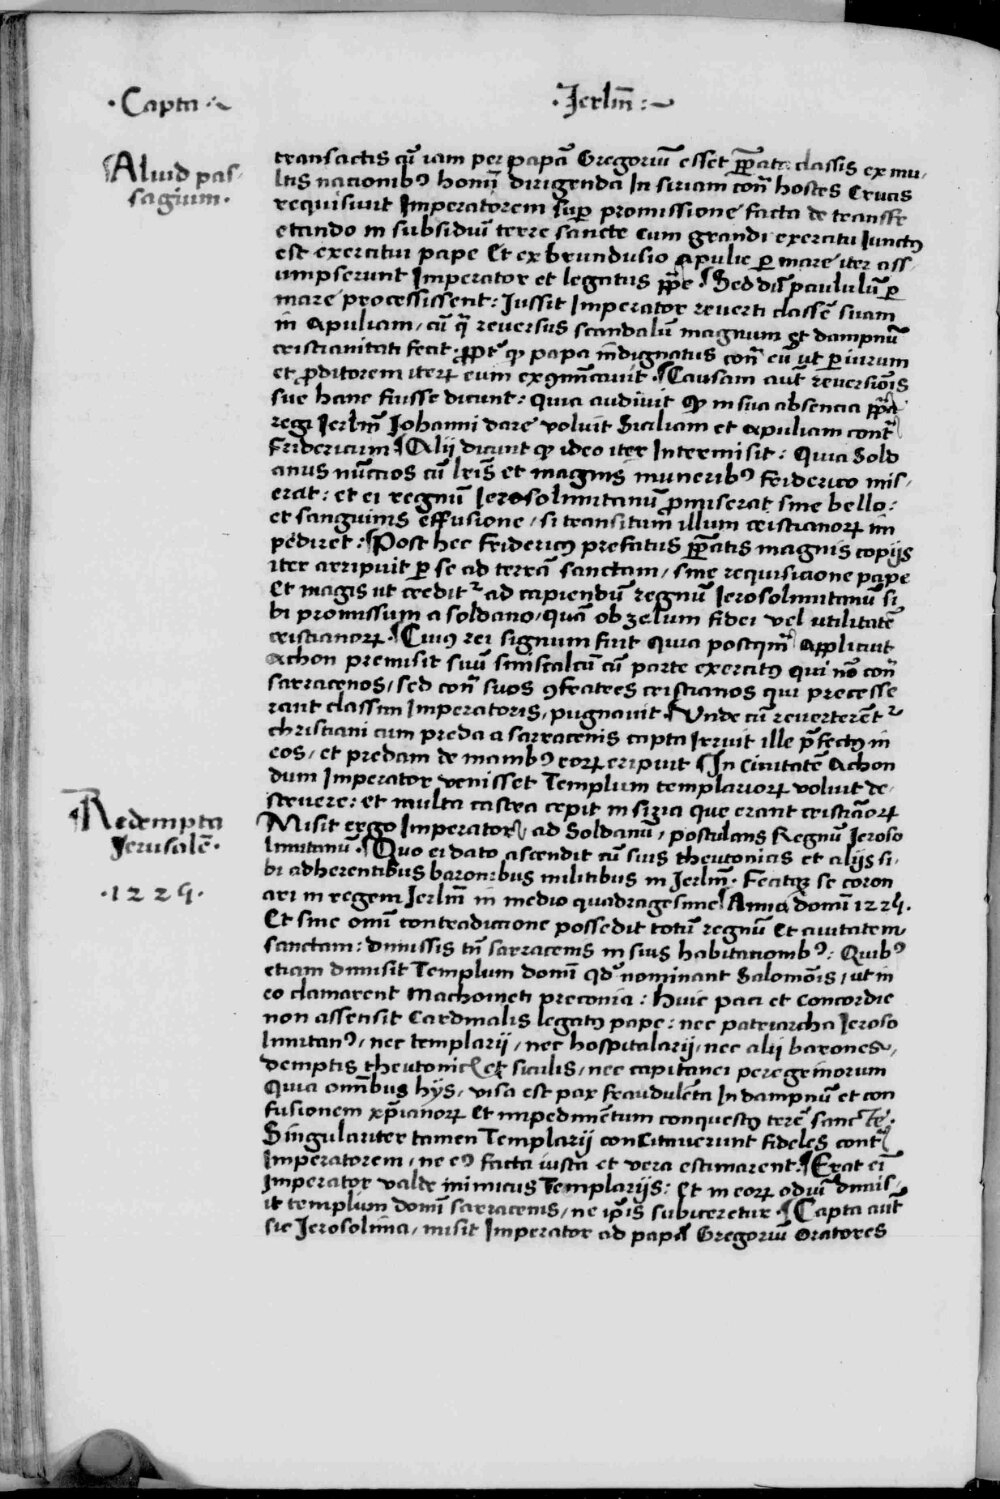 ·Capta·
·Jerlm̄:~
¶Aliud pas-
sagium·
transactis qu̅ iam per papa̅ Gregoriu̅ esset p̅p̅ata classis ex mu-
ltis nationibꝰ homi̅ dirigenda In siriam con̅ hostes Crucis
requisiuit Imperatorem sup̱ promissione facta de transffre
etando in subsidiu̅ terre sancte cum grandi exercitu Iunctꝰ
est exercitui pape Et ex brundusio apulie ꝑ mare iter ass-
umpserunt Imperator et legatus pp̅e ¶Sed du̅ paululu̅ ꝑ
mare processissent: Jussit Imperator reuerti classe̅ suam
in apuliam/ cu̅ qͣ reuersus scandalu̅ magnum et dampnu̅
cristianitati fecit ꝓpt̉ qꝫ papa indignatus con̅ eu̅ ut ꝑiurum
et ꝓditorem iterꝝ eum exꝯm̅icauit· ¶Causam aut̅ reuersio̅is
sue hanc fuisse dicunt: Quia audiuit qꝫ in sua absencia pp̅a
regi Jerlm̅ Johanni dare voluit Siciliam et apuliam cont̃
Fridericum ¶Alij dicunt qꝫ ideo iter Intermisit: Quia Sold
anus nu̅ccios cu̅ lr̅is et magnis muneribꝰ Friderico mis-
erat: et ei regnu̅ Jerosolimitanu̅ ꝓmiserat sine bello:
et sanguinis effusione/ si transitum illum cristianorꝝ im
pediret: ¶Post hec Fridericꝰ prefatus p̅p̅atis magnis copijs
iter arripuit ꝑ se ad terra̅ sanctam/ sine requisicione pape
Et magis ut credit᷑ ad capiendu̅ regnu̅ Jerosolimitanu̅ si
bi promissum a soldano/ qua̅ ob zelum fidei vel utilitate̅
cristianorꝝ· ¶Cuiꝰ rei signum fuit Quia postqm̅ applicuit
achon premisit suu̅ siniscalcu̅ cu̅ parte exercitꝰ qui no̅ con̅
sarracenos/ sed con̅ suos ꝯfratres cristianos qui precesse
rant classim Imperatoris/ pugnauit· ¶Unde cu̅ reuerterent᷑
christiani cum preda a sarracenis capta Irruit ille p̅fectꝰ in
eos/ et predam de manibꝰ eorꝝ eripuit ¶In Ciuitate̅ Achon
dum Imperator venisset Templum templariorꝝ voluit de-
struere: et multa castra cepit in siria que erant cristia̅orꝝ
¶Redempta
Jerusale̅·
·1229·
Misit ergo Imperator ad Soldanu̅/ postulans Regnu̅ Jeroso
limitanu̅· ¶Quo ei dato ascendit cu̅ suis theutonicis et alijs si-
bi adherentibus baronibus militibus in Jerlm̅· Fecitqꝫ se coron
ari in regem Jerlm̅ in medio quadragesime ¶Anno domi̅ 1229·
Et sine omi̅ contradiccione possedit totu̅ regnu̅ Et ciuitatem
sanctam: dimissis tn̅ sarracenis in suis habitationibꝰ: Quibꝰ
etiam dimisit Templum domi̅ qd̉ nominant Salomo̅is/ ut in
eo clamarent Machometi preconia: Huic paci et Concordie
non assensit Cardinalis legatꝰ pape: nec patriarcha Jeroso
limitanꝰ/ nec templarij/ nec hospitalarij/ nec alij barones/
demptis theutonicis et siculis/ nec capitanei peregrinorum
Quia omn̅ibus hijs/ visa est pax fraudule̅ta In dampnu̅ et con
fusionem xp̅ianorꝝ Et impedimentum conquestꝰ terre̅ sancte̅·
Singulariter tamen Templarij conCitauerunt fideles cont̃
Imperatorem/ ne eiꝰ facta iusta et vera estimarent· ¶Erat ei̅
Imperator valde inimicus Templarijs: Et in eorꝝ odiu̅ dimis-
it templum domi̅ sarracenis/ ne ip̅is subiceretur· ¶Capta aut̅
sic Jerosolima/ misit Imperator ad papa̅ Gregoriu̅ oratores